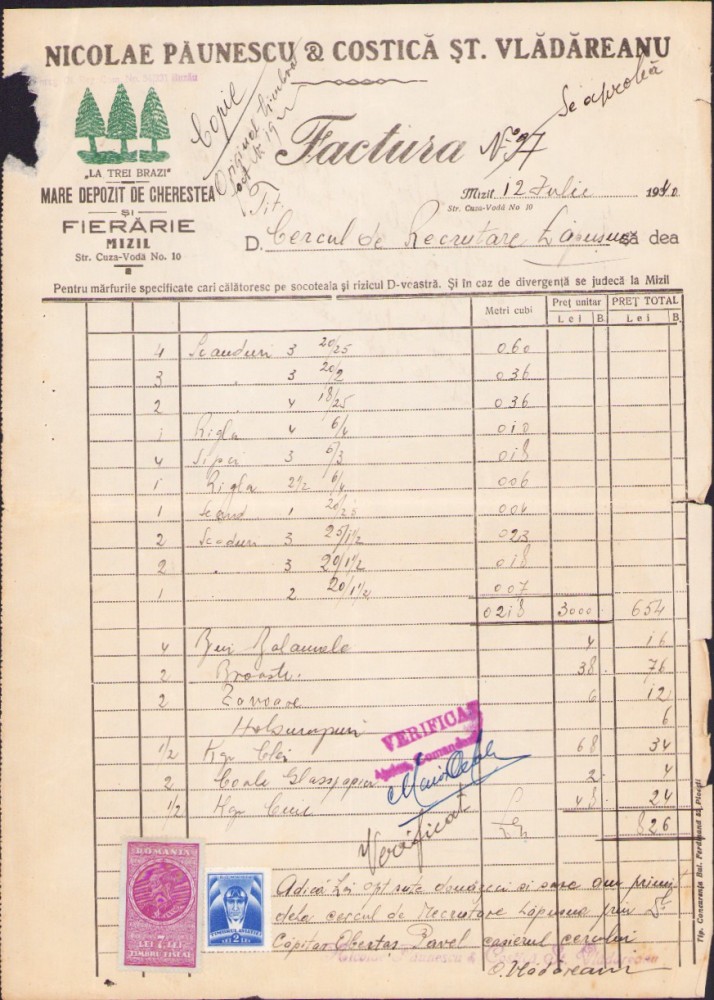 NICOLAE PĂUNESCU & COSTICĂ ȘT. VLĂDĂREANU
Copie
Se aprobă
Factura No 97
„LA TREI BRAZI”
MARE DEPOZIT DE CHERESTEA
ȘI
FIERĂRIE
MIZIL
Str. Cuza-Vodă No. 10
Mizil 12 Iulie 1940
Str. Cuza-Vodă No 10
D. Cercul de Recrutare Lăpușna să dea
Pentru mărfurile specificate cari călătoresc pe socoteala și rizicul D-voastră. Și în caz de divergență se judecă la Mizil
Metri cubi Preț unitar PREȚ TOTAL
Lei B. Lei B.
4 Scanduri 3 20/25 0.60
3 " 3 20/2 0.36
2 " 4 18/25 0.36
1 Rigla 4 6/4 018
4 Sipci 3 6/3 018
1 Rigla 2 1/2 6/4 006
1 Scand 1 20/25 004
2 Scaduri 3 25/1 1/2 023
2 " 3 20/1 1/2 018
1 2 20/1 1/2 007
0218 3000 654
4 Balamale 4 16
2 Broaste 38 76
2 Zavoare 6 12
Holsurupuri 6
1/2 Kgr Clei 68 34
2 Coale Glasspapir 2 4
1/2 Kgr Cuie 48 24
826
VERIFICAT
Verificat
ROMANIA
LEI 7 LEI
TIMBRU FISCAL
TIMBRUL AVIAȚIEI
LEI 2 LEI
Adică Lei opt sute douăzeci si sase am primit
dela cercul de Recrutare Lăpușna prin
Căpitan Obertaș Pavel casierul cercului
Nicolae Păunescu & Costică Șt. Vlădăreanu
C. Vlădăreanu
Tip. Concurența Bul. Ferdinand Ploești